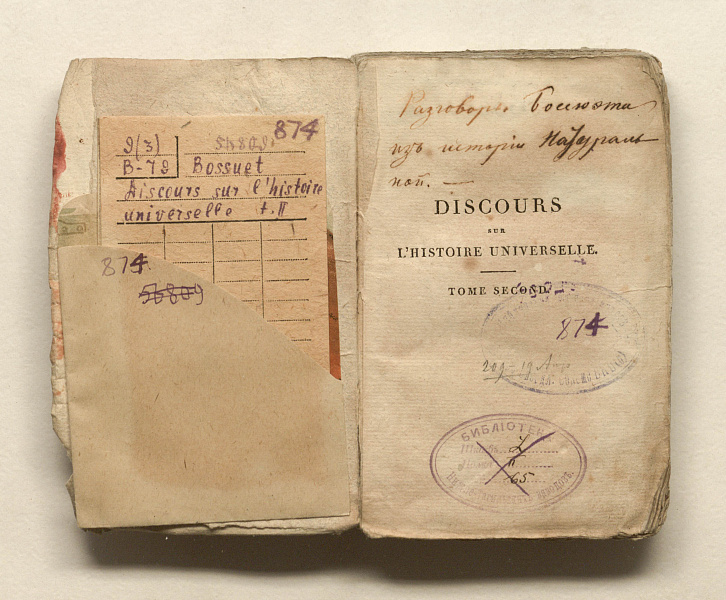 874
9(3)
В-79 Bossuet
Discours sur l'histoire
universelle t. II
874
56809
Разговоры Боссюэта
изъ исторіи Натураль
ной. —
DISCOURS
SUR
L'HISTOIRE UNIVERSELLE.
TOME SECOND.
874
БИБЛІОТЕКА
65